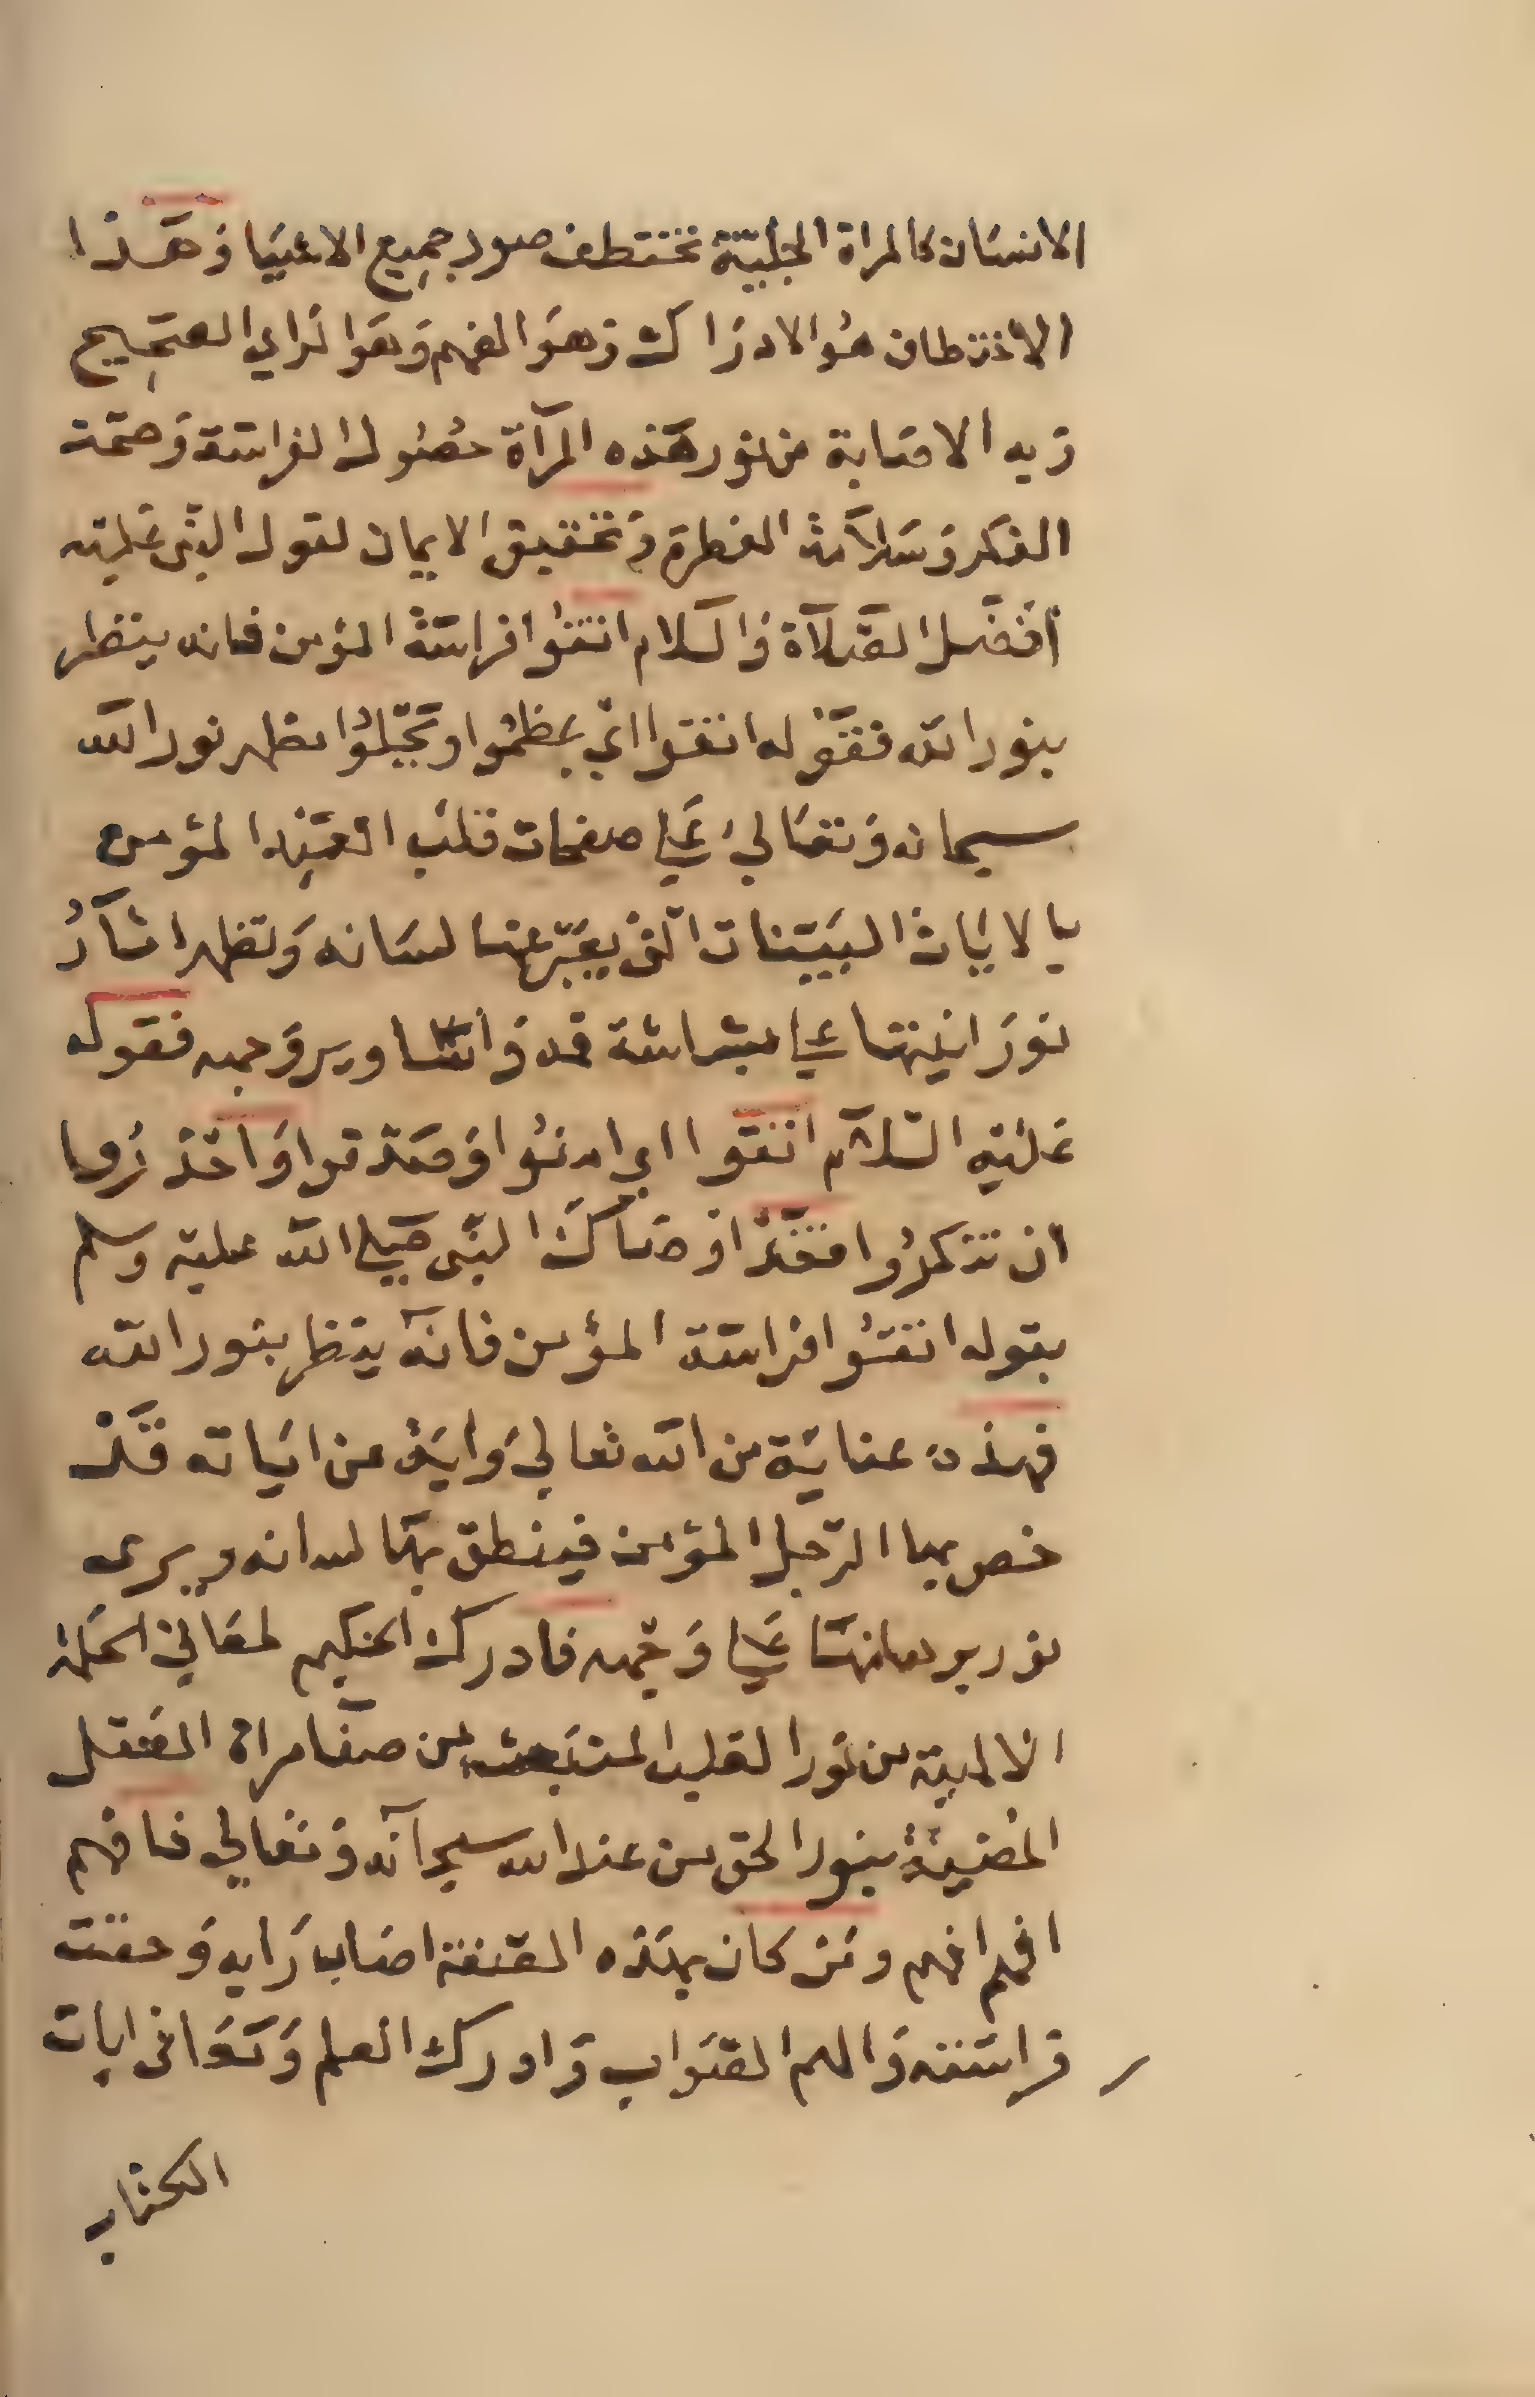 الانسان كالمراة الجليّة تختطف صور جميع الاعيا وهذا
الاختطاف هو الادراك وهو الفهم وهو الراي الصحيح
وبه الاصابة من نور هذه المرآة حصول الفراسة وصحة
الفكر وسلامة الفطرة وتحقيق الايمان لقول النبّى عليه
افضل الصّلاة والسلام اتقوا فراسة المؤمن فانه ينظر
بنور الله فقوله اتقوا ايّ عظموا وبجّلوا مظهر نور الله
سبحانه وتعالي علي صفحات قلب العبد المؤمن
بالايات البيّنات الّتى يعبّر عنها لسانه وتظهر اثار
نورانيتها علي بشراشة قده واسّاوير وجهه فقوله
عليه السّلام اتقوا اي امنوا وصدقوا واحذروا
ان تنكروا فقد اوصاك النبّى صلي الله عليه وسلم
بقوله اتقوا فراسة المؤمن فانه ينظر بنور الله
فهذه عناية من الله تعالي واية من اياته قد
خص بها الرّجل المؤمن فينطق بها لسانه ويرى
نور برهانها علي وجهه فادرك الحكيم لمعاني الحكمة
الالهية من نور القلب المنبعث من صفا مراة العقل
المضيئة بنور الحق من عند الله سبحانه وتعالي فافهم
افهم افهم ومن كان بهذه الصفة اصاب رايه وحقت
فراسته والهم الصواب وادرك العلم ومعانى ايات
الكتاب